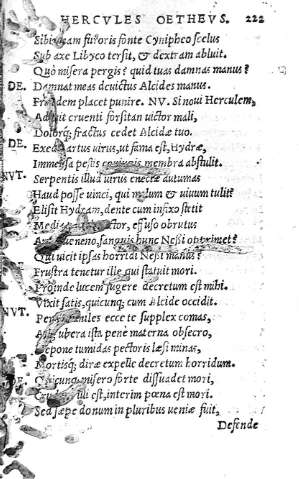 HERCULES OETHEVS. 222
Sibi furoris fonte Cyniphco scelus
Sub axe Libyco tersit, & dextram abluit.
Quò misera pergis? quid tuas damnas manus?
DE. Damnat meas deuictus Alcides manus.
placet punire. NV. Si noui Herculem,
cruenti forsitan uictor mali,
Dolorq; fractus cedet Alcidæ tuo.
DE. artus uirus, ut fama est, Hydræ,
Immensa pestis coniugis membra abstulit.
NVT. Serpentis illud uirus enectæ autumas
Haud posse uinci, qui malum & uiuum tulit?
Elisit Hydram, dente cum infixo stetit
Media uictor, effuso obrutus
ueneno, sanguis hunc Nessi opprimet?
Qui uicit ipsas horridi Nessi manus?
Frustra tenetur ille, qui statuit mori.
Proinde lucem fugere decretum est mihi.
Vixit satis, quicunq; cum Alcide occidit.
NVT. Per aniles ecce te supplex comas,
ubera ista pene materna obsecro,
Depone tumidas pectoris læsi minas,
Mortisq; diræ expelle decretum horridum.
misero forte dissuadet mori,
illi est, interim pœna est mori.
Sed sæpe donum in pluribus ueniæ fuit,
Defende